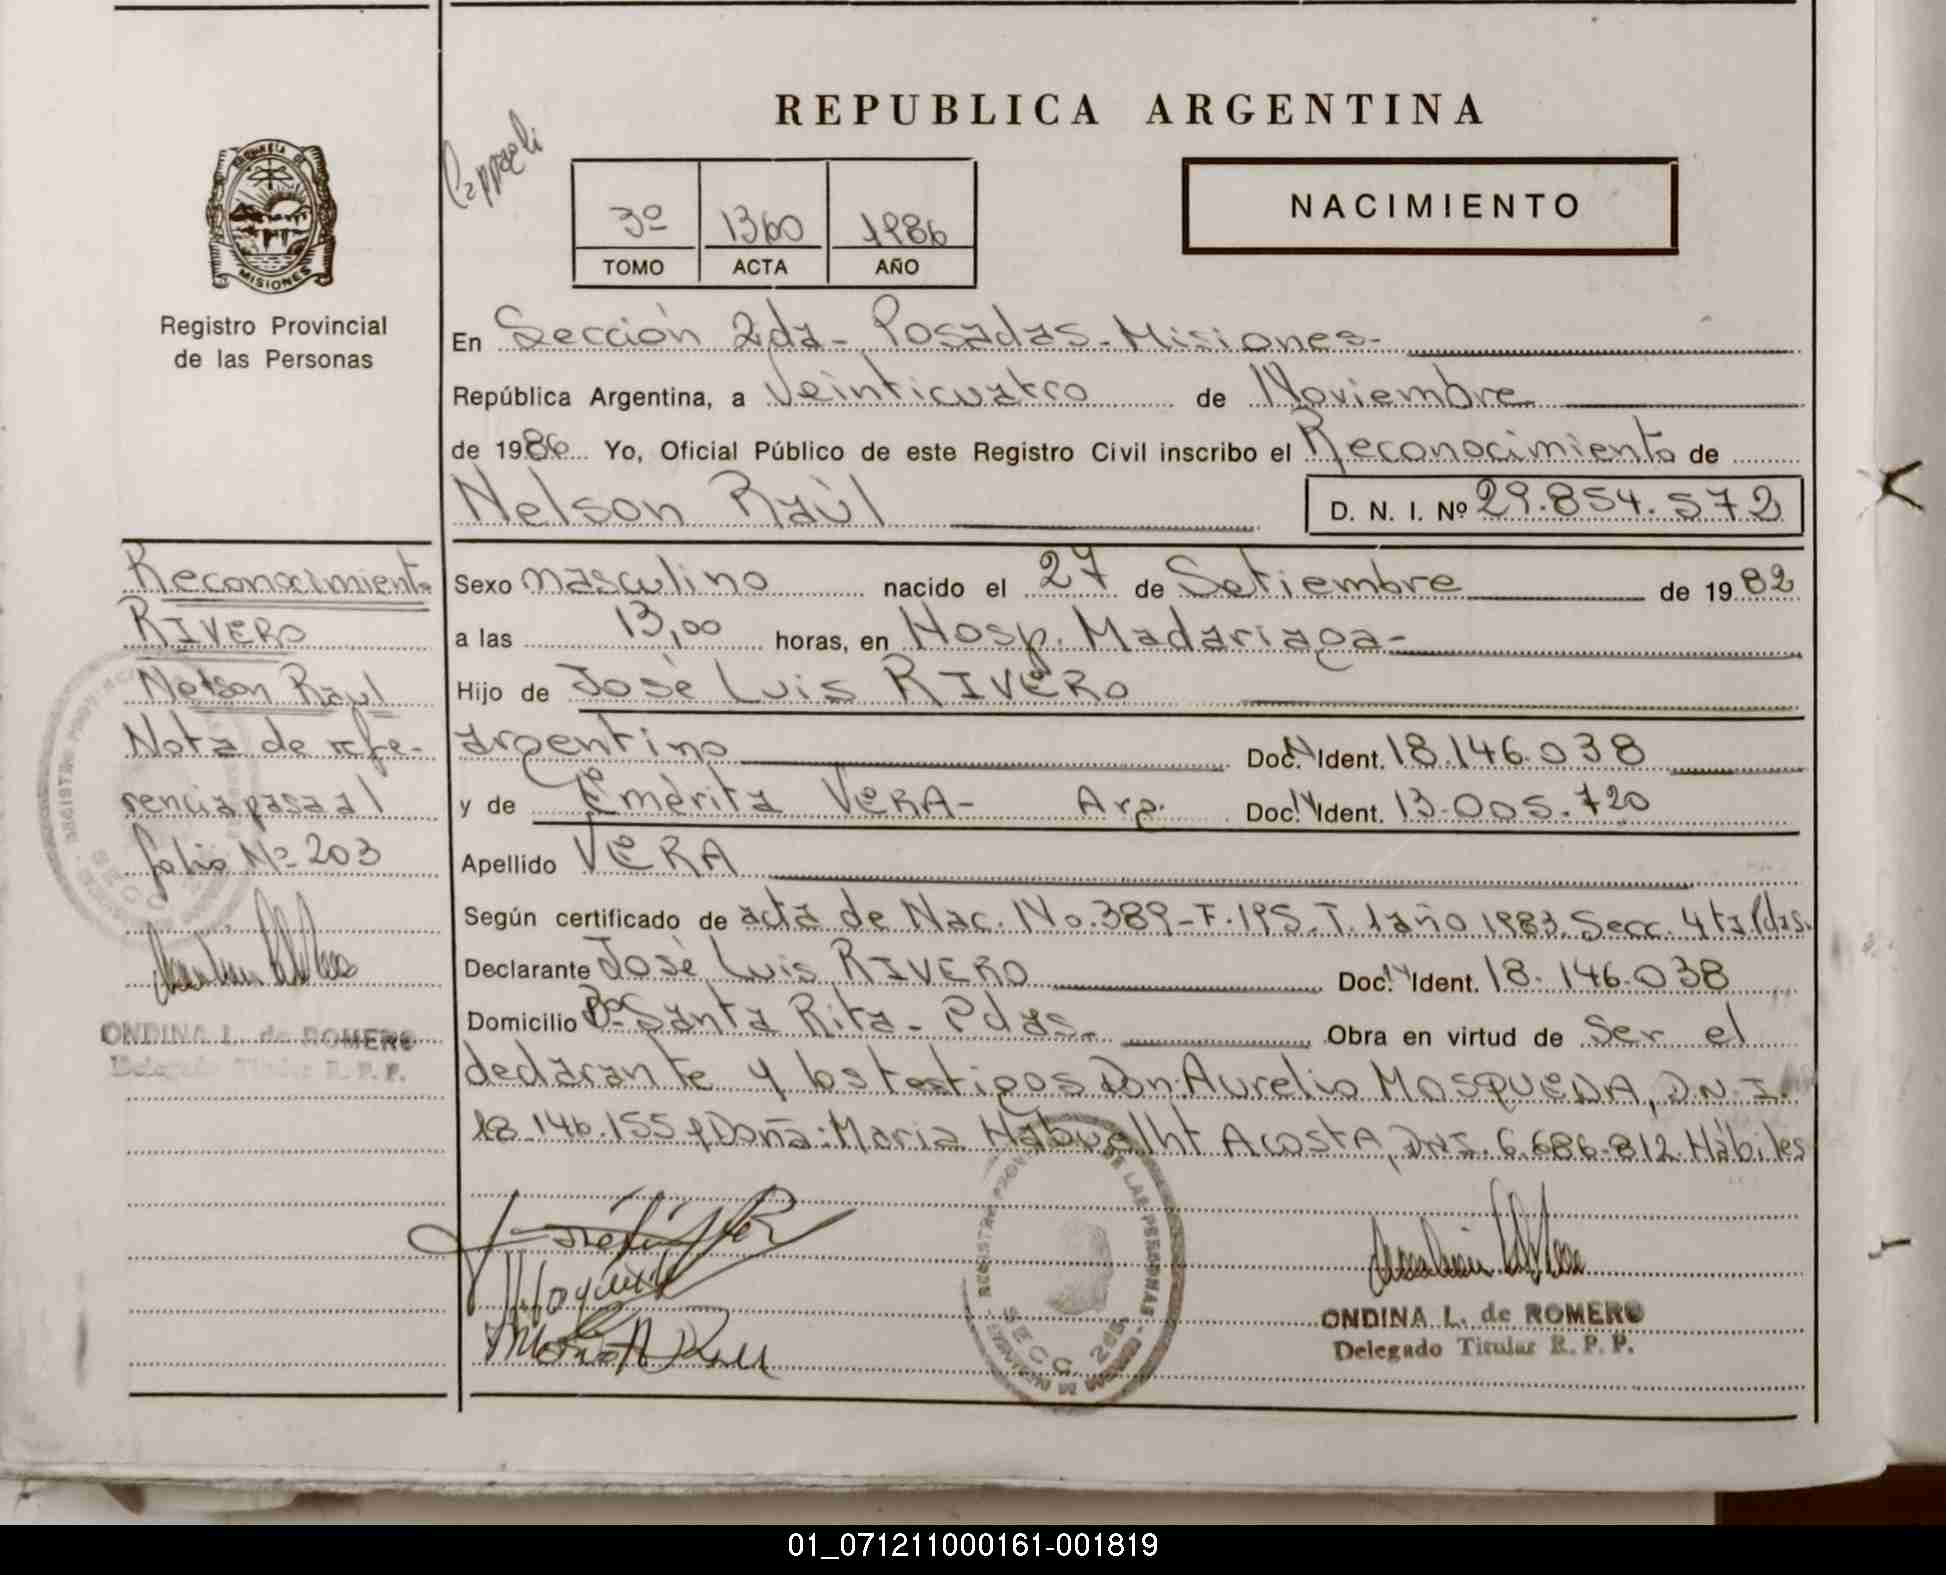 REPUBLICA ARGENTINA
NACIMIENTO
3º 1360 1986
TOMO ACTA AÑO
PROVINCIA DE
MISIONES
Registro Provincial
de las Personas
En Sección 2da- Posadas-Misiones-
República Argentina, a Veinticuatro de Noviembre
de 1986 Yo, Oficial Público de este Registro Civil inscribo el Reconocimiento de
Nelson Raùl D. N. I. Nº 29.854.572
Sexo masculino nacido el 27 de Setiembre de 1982
a las 13,00 horas, en Hosp. Madariaga-
Hijo de José Luis RIVERO
argentino Doc. Ident. 18.146.038
y de Emérita VERA- Arg. Doc. Ident. 13.005.720
Apellido VERA
Según certificado de acta de Nac. No.389-F.195.T.1año 1983. Secc. 4ta.Pdas.
Declarante José Luis RIVERO Doc. Ident. 18.146.038
Domicilio Bº Santa Rita- Pdas. Obra en virtud de Ser el
declarante y los testigos Don:Aurelio MOSQUEDA, D.N.I.
18.146.155 y Doña:Maria Acosta, DNI. 6.686.812.Hábiles
Reconocimiento
RIVERO
Nelson Raul
Nota de refe-
rencia pasa al
folio Nº 203
ONDINA L. de ROMERO
Delegado Titular R. P. P.
DE LAS PERSONAS
SECC 2da
ONDINA L. de ROMERO
Delegado Titular R. P. P.
01_071211000161-001819